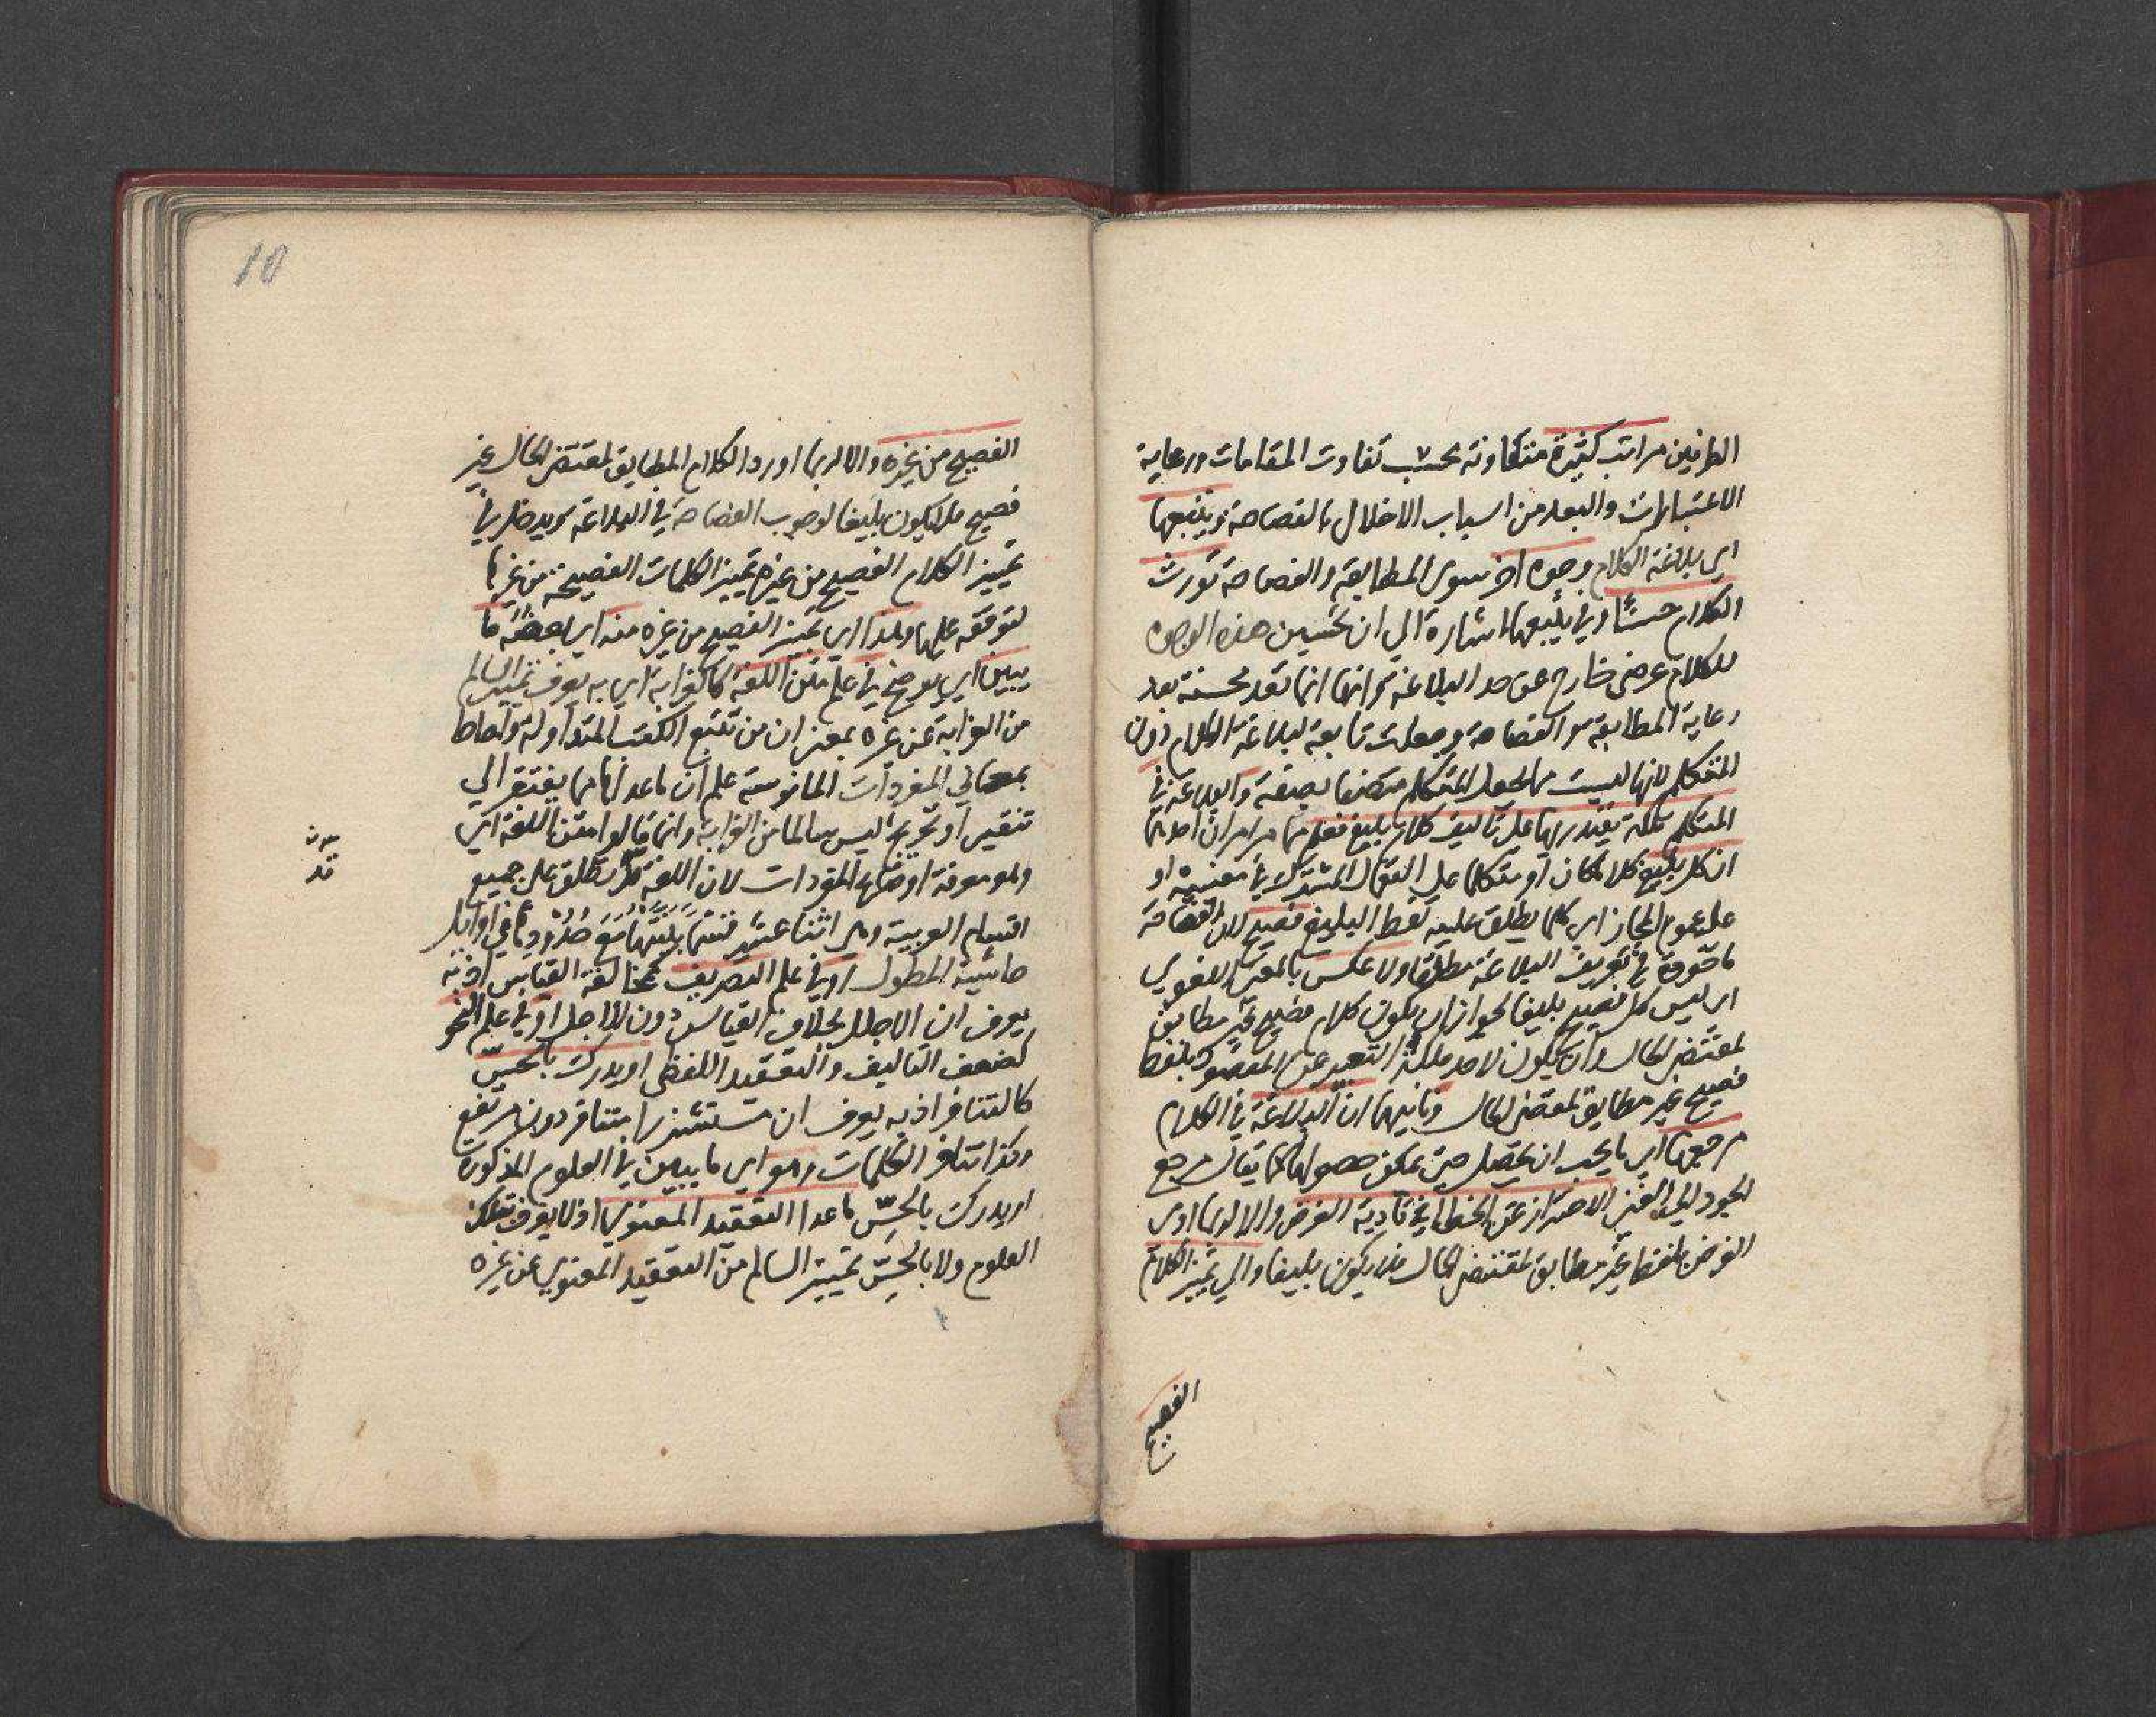 الطرفين مراتب كثيرة متفاوتة بحسب تفاوت المقامات ورعاية
الاعتبارات والبعد من اسباب الاخلال بالفصاحة ويتبعها
اي بلاغة الكلام وجوه اخر سوى المطابقة والفصاحة تورث
الكلام حسنا وفي يتبعها اشارة الي ان تحسين هذه الوجوه
للكلام عرضي خارج عن حد البلاغة والي انها انما تعد محسنة بعد
رعاية المطابقة والفصاحة وجعلت تابعة لبلاغة الكلام دون
المتكلم لانها ليست مما يجعل المتكلم متصفا بصفة والبلاغة في
المتكلم ملكة يقتدر بها علي تأليف كلام بليغ فعلم مما مر امران احدهما
ان كل بليغ كلاما كان او متكلما علي استعمال المشترك في معنييه او
علي عموم المجاز اي كلما يطلق عليه لفظ البليغ فصيح لان الفصاحة
ماخوذة في تعريف البلاغة مطلقا ولا عكس بالمعنى اللغوي
اي ليس كل فصيح بليغا لجواز ان يكون كلام فصيح غير مطابق
لمقتضى الحال وان يكون لاحد ملكة التعبير عن المقصود بلفظ
فصيح غير مطابق لمقتضى الحال وثانيهما ان البلاغة في الكلام
مرجعها اي ما يجب ان يحصل حتى يمكن حصولها كما يقال مرجع
الجود الي الغنى الاحتراز عن الخطا في تادية الغرض والا لربما ادى
الغرض بلفظ غير مطابق لمقتضى الحال فلا يكون بليغا والي تمييز الكلام
الفصيح
10
الفصيح من غيره والا لربما اورد الكلام المطابق لمقتضى الحال غير
فصيح فلا يكون بليغا لوجوب الفصاحة في البلاغة ويدخل في
تمييز الكلام الفصيح من غيره تمييز الكلمات الفصيحة من غيرها
لتوقفه عليها وهذا اي تمييز الفصيح من غيره منه اي بعضه ما
يبين اي يوضح في علم متن اللغة كالغرابة اي به يعرف تمييز السالم
من الغرابة عن غيره بمعنى ان من تتبع الكتب المتداولة واحاط
بمعاني المفردات المانوسة علم ان ما عداها مما يفتقر الي
تنقير او تخريج ليس سالما من الغرابة وانما قالوا متن اللغة اي
وهو معرفة اوضاع المفردات لان اللغة قد تطلق علي جميع
اقسام العربية وهي اثنا عشر قسما بينتها مع حدودها في اوائل
حاشية المطول او في علم التصريف كمخالفة القياس اذ به
يعرف ان الاجلل بخلاف القياس دون الاجل او في علم النحو
كضعف التاليف والتعقيد اللفظي او يدرك بالحس
كالتنافر اذ به يعرف ان مستشزرا متنافر دون مرتفع
وكذا تنافر الكلمات وهو اي ما يبين في العلوم المذكورة
او يدرك بالحس ما عدا التعقيد المعنوي اذ لا يعرف بتلك
العلوم ولا بالحس تمييز السالم من التعقيد المعنوي عن غيره